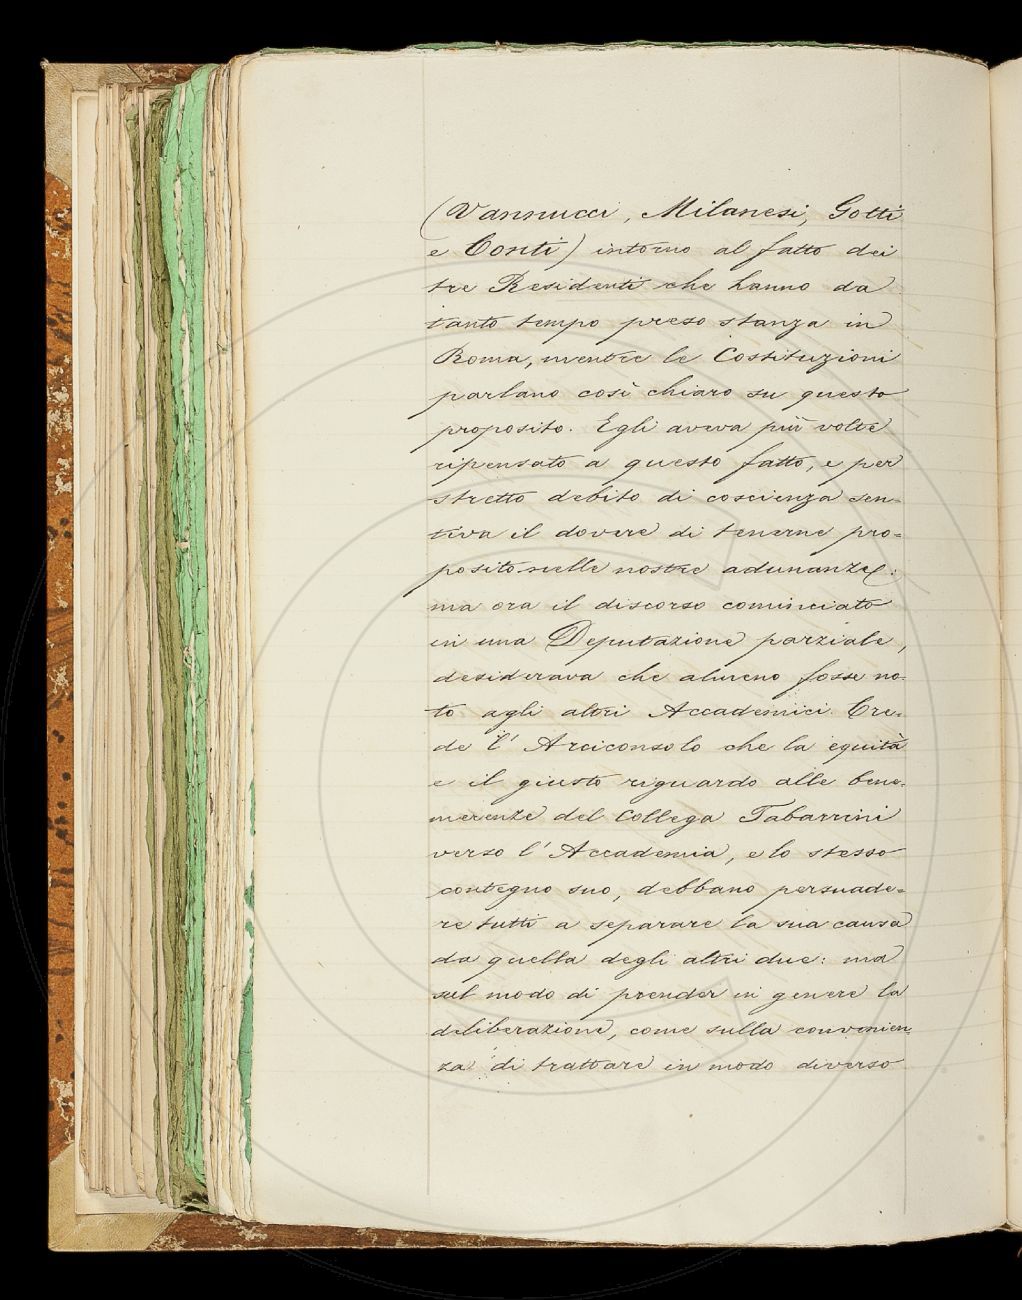 (Vannucci, Milanesi, Gotti
e Conti) intorno al fatto dei
tre Residenti che hanno da
tanto tempo preso stanza in
Roma, mentre le Costituzioni
parlano così chiaro su questo
proposito. Egli aveva più volte
ripensato a questo fatto, e per
stretto debito di coscienza sen-
tiva il dovere di tenerne pro-
posito nelle nostre adunanze:
ma ora il discorso cominciato
in una Deputazione parziale,
desiderava che almeno fosse no-
to agli altri Accademici. Cre-
de l'Arciconsolo che la equità
e il giusto riguardo alle bene-
merenze del Collega Tabarrini
verso l'Accademia, e lo stesso
contegno suo, debbano persuade-
re tutti a separare la sua causa
da quella degli altri due: ma
sul modo di prender in genere la
deliberazione, come sulla convenien-
za di trattare in modo diverso